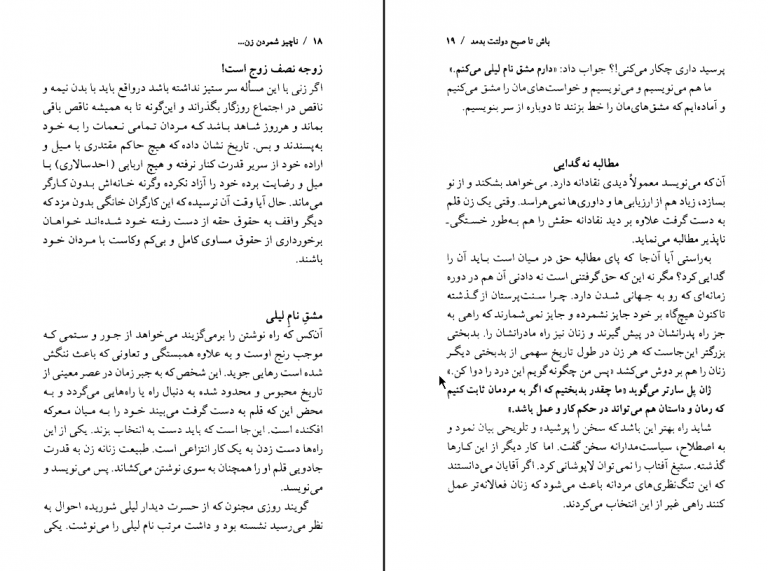 ۱۸ / ناچیز شمردن زن...
زوجه نصف زوج است!
اگر زنی با این مسأله سر ستیز نداشته باشد درواقع باید با بدن نیمه و
ناقص در اجتماع روزگار بگذراند و این‌گونه تا به همیشه ناقص باقی
بماند و هرروز شاهد باشد که مردان تمامی نعمات را به خود
به‌پسندند و بس. تاریخ نشان داده که هیچ حاکم مقتدری با میل و
اراده خود از سریر قدرت کنار نرفته و هیچ اربابی (احدسالاری) با
میل و رضایت برده خود را آزاد نکرده وگرنه خانه‌اش بدون کارگر
می‌ماند. حال آیا وقت آن نرسیده که این کارگران خانگی بدون مزد که
دیگر واقف به حقوق حقه از دست رفته خود شده‌اند خواهان
برخورداری از حقوق مساوی کامل و بی‌کم وکاست با مردان خود
باشند.
مشقِ نامِ لیلی
آن‌کس که راه نوشتن را برمی‌گزیند می‌خواهد از جور و ستمی که
موجب رنج اوست و به علاوه همبستگی و تعاونی که باعث ننگش
شده است رهایی جوید. این شخص که به جبر زمان در عصر معینی از
تاریخ محبوس و محدود شده به دنبال راه یا راه‌هایی می‌گردد و به
محض این که قلم به دست گرفت می‌بیند خود را به میان معرکه
افکنده است. این‌جا است که باید دست به انتخاب بزند. یکی از این
راه‌ها دست زدن به یک کار انتزاعی است. طبیعت زنانه زن به قدرت
جادویی قلم او را همچنان به سوی نوشتن می‌کشاند. پس می‌نویسد و
می‌نویسد.
گویند روزی مجنون که از حسرت دیدار لیلی شوریده احوال به
نظر می‌رسید نشسته بود و داشت مرتب نام لیلی را می‌نوشت. یکی
باش تا صبح دولتت بدمد / ۱۹
پرسید داری چکار می‌کنی!؟ جواب داد: «دارم مشق نام لیلی می‌کنم.»
ما هم می‌نویسیم و می‌نویسیم و خواست‌های‌مان را مشق می‌کنیم
و آماده‌ایم که مشق‌های‌مان را خط بزنند تا دوباره از سر بنویسیم.
مطالبه نه گدایی
آن‌که می‌نویسد معمولاً دیدی نقادانه دارد. می‌خواهد بشکند و از نو
بسازد، زیاد هم از ارزیابی‌ها و داوری‌ها نمی‌هراسد. وقتی یک زن قلم
به دست گرفت علاوه بر دید نقادانه حقش را هم به‌طور خستگی‌ـ
ناپذیر مطالبه می‌نماید.
به‌راستی آیا آن‌جا که پای مطالبه حق در میان است باید آن را
گدایی کرد؟ مگر نه این که حق‌گرفتنی است نه دادنی آن هم در دوره
زمانه‌ای که رو به جهانی شدن دارد. چرا سنت‌پرستان از گذشته
تاکنون هیچ‌گاه بر خود جایز نشمرده و جایز نمی‌شمارند که راهی به
جز راه پدرانشان در پیش گیرند و زنان نیز راه مادرانشان را. بدبختی
بزرگتر این‌جاست که هر زن در طول تاریخ سهمی از بدبختی دیگر
زنان را هم بر دوش می‌کشد «پس من چگونه‌گویم این درد را دوا کن.»
ژان پل سارتر می‌گوید «ما چقدر بدبختیم که اگر به مردمان ثابت کنیم
که رمان و داستان هم می‌تواند در حکم کار و عمل باشد.»
شاید راه بهتر این باشد که سخن را پوشیده و تلویحی بیان نمود و
به اصطلاح، سیاست‌مدارانه سخن گفت. اما کار دیگر از این کارها
گذشته. ستیغ آفتاب را نمی‌توان لاپوشانی کرد. اگر آقایان می‌دانستند
که این تنگ‌نظری‌های مردانه باعث می‌شود که زنان فعالانه‌تر عمل
کنند راهی غیر از این انتخاب می‌کردند.